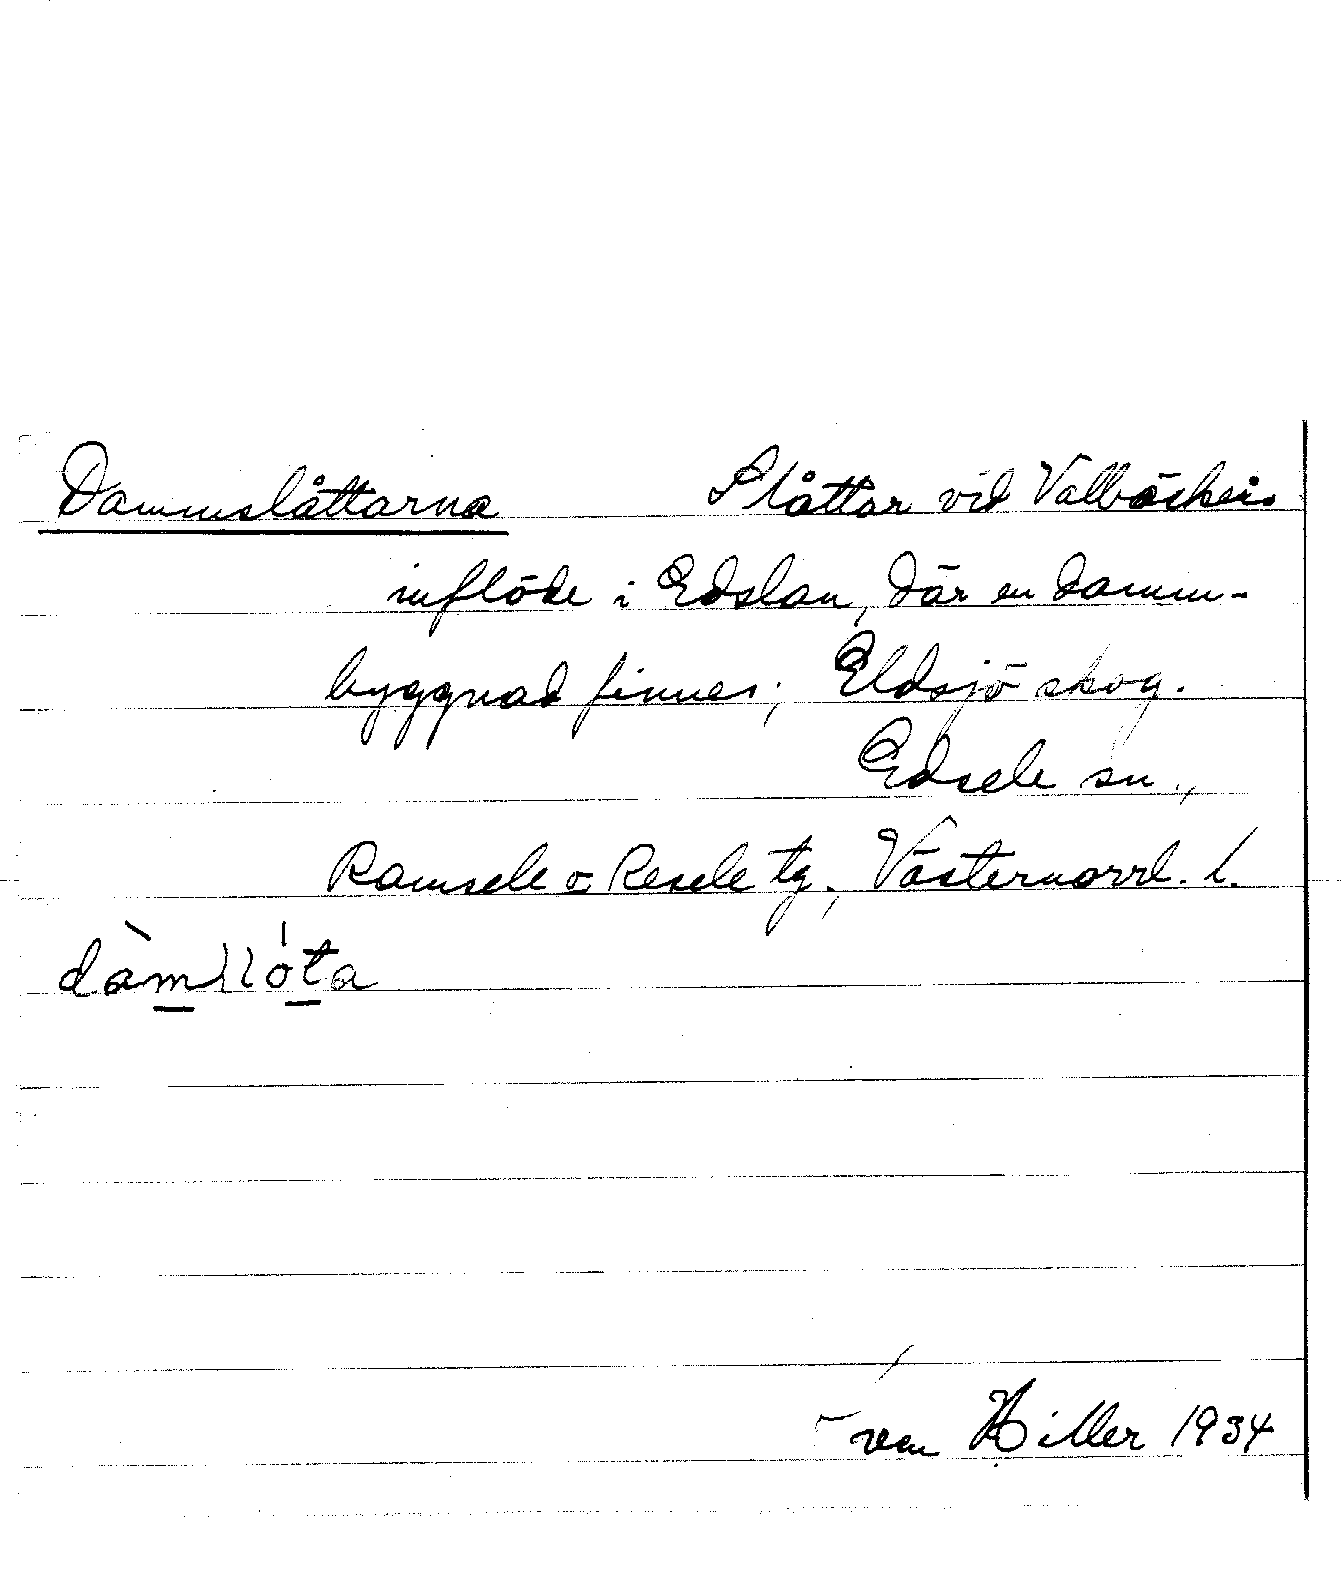 Dammslåttarna Slåttar vid Valbäckens
inflöde i Edslan, där en damm-
byggnad finnes; Eldsjö skog.
Edsele sn.,
Ramsele o Resele tg., Västernorrl. l.
Hiller 1934